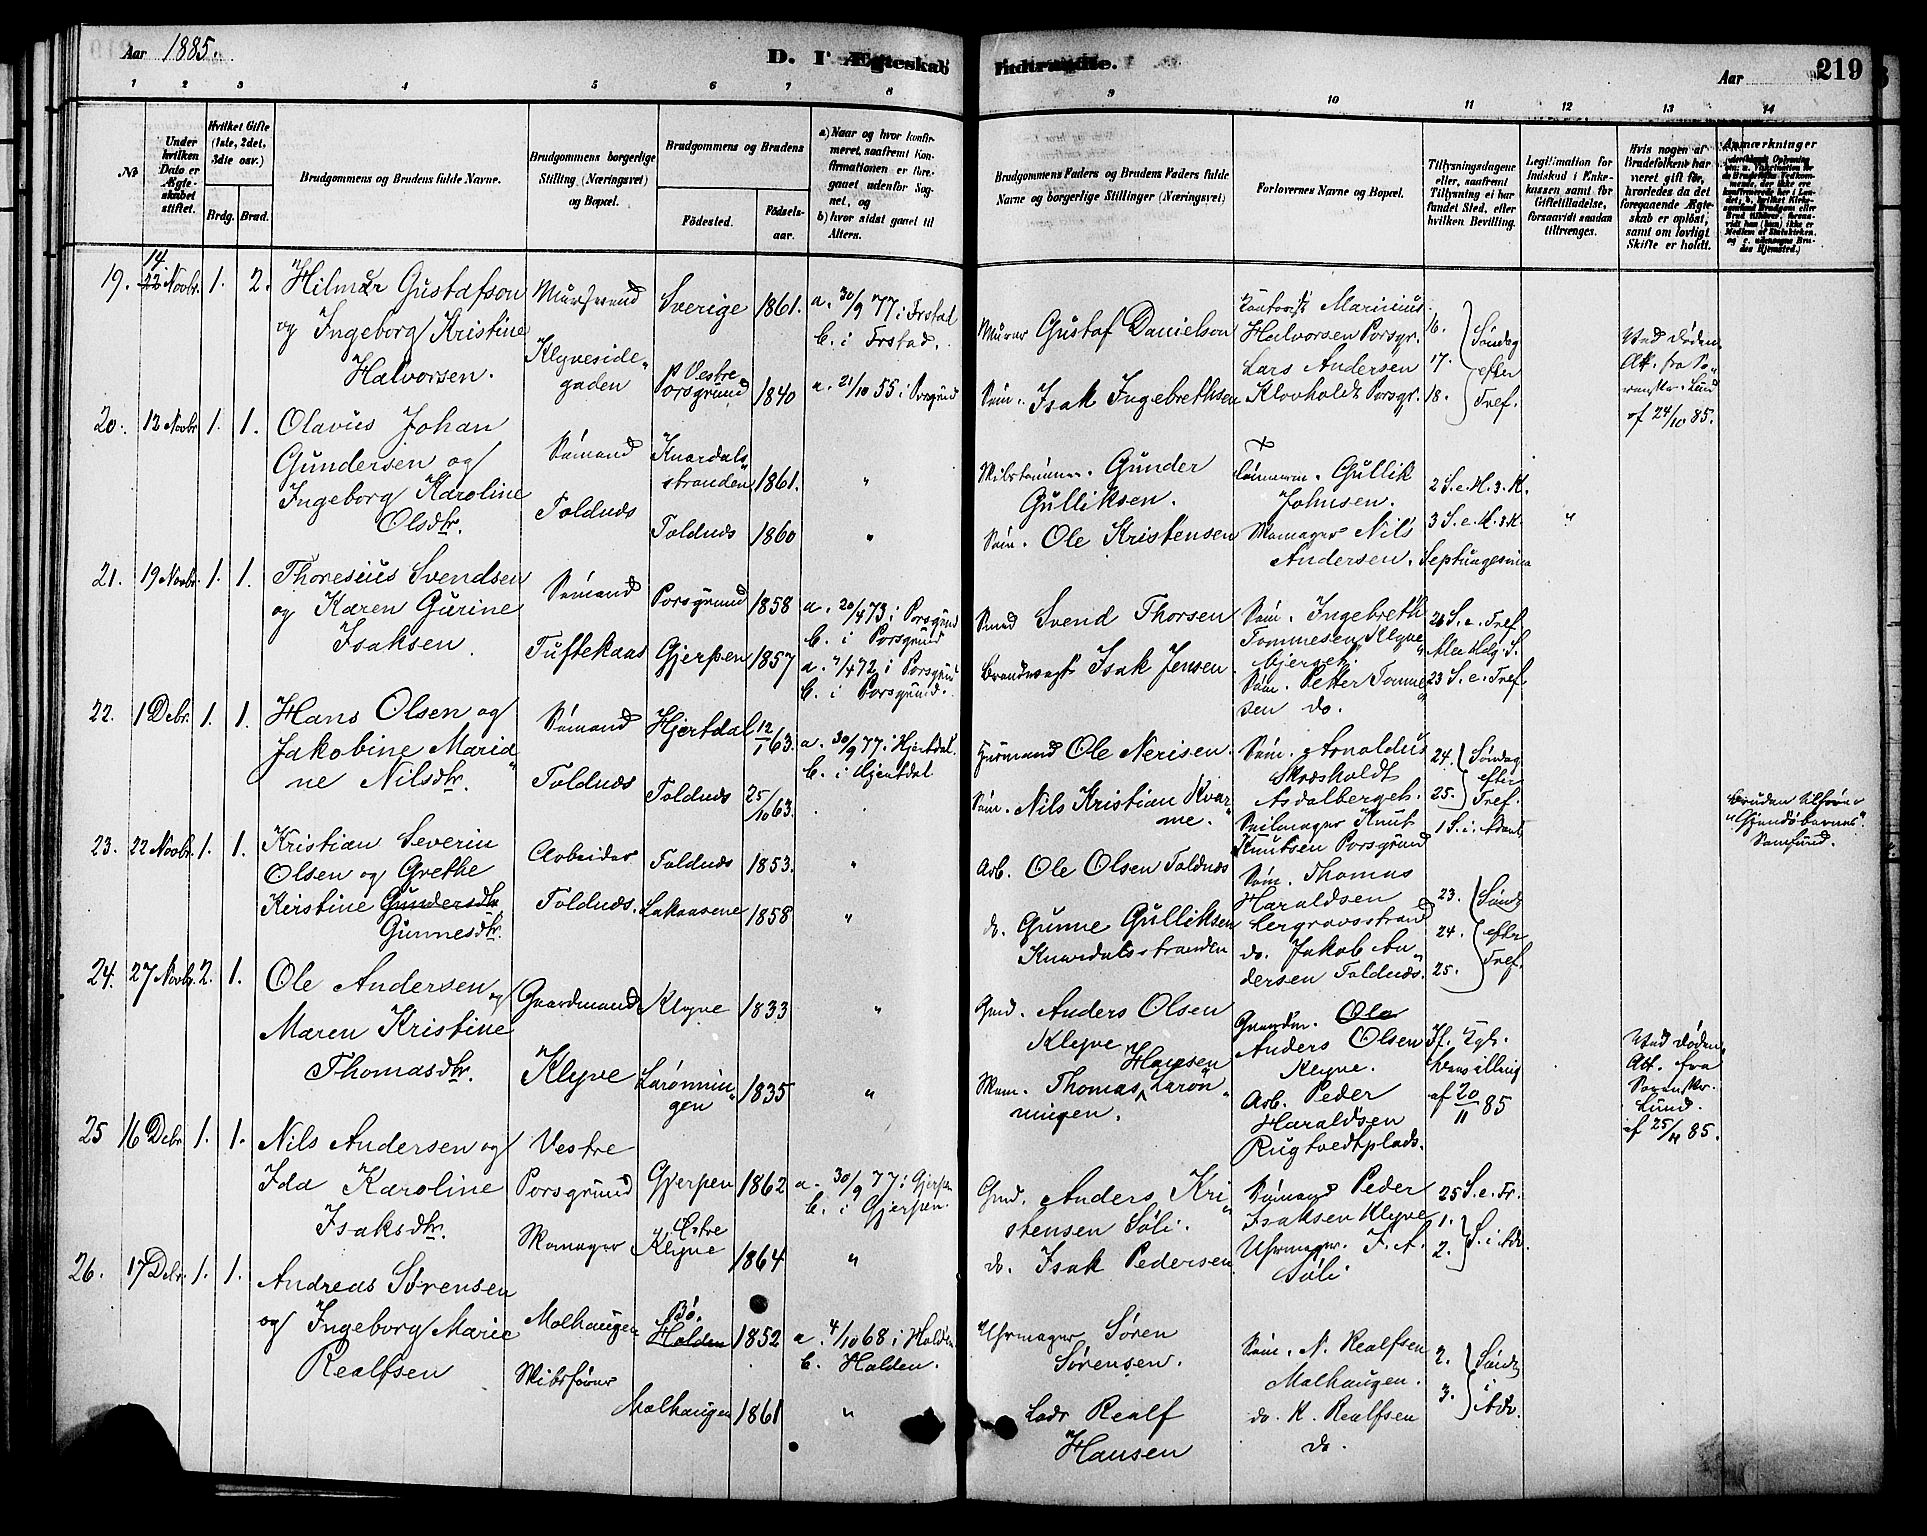 Aar 1885.
D. I Ægteskab Indtraadte.
Aar
219
1 2 3 4 5 6 7 8 9 10 11 12 13 14
No
Under hvilken Dato er Ægteskabet stiftet.
Hvilket Gifte (1ste, 2det, 3die osv.)
Brdg. Brud.
Brudgommens og Brudens fulde Navne.
Brudgommens borgerlige Stilling (Næringsvei) og Bopæl.
Brudgommens og Brudens
Fødested.
Fødselsaar.
a) Naar og hvor konfirmeret, saafremt Konfirmationen er foregaaet udenfor Sognet, og
b) hvor sidst gaaet til Alters.
Brudgommens Faders og Brudens Faders fulde Navne og borgerlige Stillinger (Næringsvei)
Forlovernes Navne og Bopæl.
Tillysningsdagene eller, saafremt Tillysning ei har fundet Sted, efter hvilken Bevilling.
Legitimation for Indskud i Enkekassen samt for Giftetilladelse, forsaavidt saadan tiltrænges.
Hvis nogen af Brudefolkene har været gift før, hvorledes da det foregaaende Ægteskab er opløst, samt om lovligt Skifte er holdt.
Anmærkninger
19. 14 22 Novbr. 1. 2. Hilmar Gustafson
og Ingeborg Kristine
Halvorsen.
Murersvend
Klyveside"
gaden
Sverige 1861.
Vestre
Porsgrund 1840
a. 30/9 77 i
b. i
a. 21/10 55 i Porsgrund
Murer Gustaf Danielson
Søm. Isak Ingebrethsen
Kontorist Marinius
Halvorsen Porsgr.
Lars Andersen
Klovholdt Porsgr.
16.
17.
18.
Søndag
efter
Tref.
Ved Døden.
Att. fra So"
renskr. Lund
af 24/10 85.
20. 12 Novbr. 1. 1. Olavus Johan
Gundersen og
Ingeborg Karoline
Olsdtr.
Sømand
Toldnæs
Knardals"
stranden 1861. "
Toldnæs 1860 "
Gunder
Gulliksen.
Søm. Ole Kristensen
Gullik
Johnsen.
Skomager Nils
Andersen.
2 S. e. H. 3. K.
3 S. e. H. 3. K.
Septuagesima
"
21. 19 Novbr. 1. 1. Thoresius Svendsen
og Karen Gurine
Isaksen.
Sømand
Tuftekaas
Porsgrund 1858
Gjerpen 1857
a. 20/4 73 i Porsgrund
b. i Porsgrund
a. 7/4 72 i Porsgrund
b. i Porsgrund.
Smed Svend Thorsen
Brandvagt Isak Jensen
Søm. Ingebreth
Tommesen Klyve"
bjerget.
Søm. Petter Tomme"
sen do.
26 S. e. Tref.
Alle Helg. S.
23 S. e. Tref.
22. 1 Debr. 1. 1. Hans Olsen og
Jakobine Maria"
ne Nilsdtr.
Sømand
Toldnæs
Hjertdal 12/1 63.
Toldnæs 25/10 63.
a. 30/9 77 i Hjertdal.
b. i Hjertdal
Husmand Ole Nerisen.
Søm. Nils Kristian Kvar"
me.
Søm. Arnoldus
Skræsholdt
Asdalberget.
Seilmager Knut
Knutsen Porsgrund
24.
25.
Søndag
efter
Tref.
1 S. i. Advent
Bruden tilhører
"
Samfund.
23. 22 Novbr. 1. 1. Kristian Severin
Olsen og Grethe
Kirstine Gundersdtr
Gunnesdtr.
Arbeider
Toldnæs.
Toldnæs 1853. "
Lakaasene 1858 "
Arb. Ole Olsen Toldnæs
do. Gunne Gulliksen
Knardalsstranden
Søm. Thomas
Haraldsen
do. Jakob An"
dersen Toldnæs.
23.
24.
25.
Sønd
efter
Tref.
24. 27 Novbr. 2. 1. Ole Andersen og
Maren Kristine
Thomasdtr.
Gaardmand
Klyve
Klyve 1833 "
Larønnin"
gen 1835 "
Gmd. Anders Olsen
Klyve
Hansen
Skom. Thomas Larøn"
ningen.
Gaardm. Ole
Anders Olsen
Klyve.
Arb. Peder
Haraldsen
Rugtvedtplads.
If. Kgl.
bevilling
af 20/11 85
Ved Døden.
Att. fra
Sorenskr.
Lund.
af 25/11 85.
25 16 Debr. 1. 1. Nils Andersen og
Ida Karoline
Isaksdtr.
Vestre
Porsgrund
Skomager
Gjerpen 1862
Østre
Klyve 1864 "
a. 30/9 77 i Gjerpen
b. i Gjerpen.
Gmd. Anders Kri"
stensen Søli.
do. Isak Pedersen.
Sømand Peder
Isaksen Klyve
Uhrmager. I. A.
Søli
25 S. e. Tr.
1.
2.
S. i. Adv.
26. 17 Debr. 1. 1. Andreas Sørensen
og Ingeborg Marie
Realfsen
Molhaugen
Skibsfører
Bø.
Holden 1852
Molhaugen 1861 "
a. 4/10 68 i Holden
b. Holden.
Uhrmager Søren
Sørensen.
Lods Realf
Hansen
Søm. N. Realfsen
Molhaugen.
do. K. Realfsen
do.
2.
3.
Sønd
i
Adv.